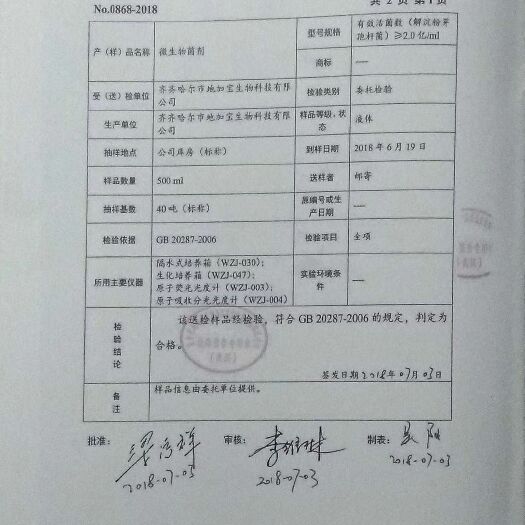 No.0868-2018
共 2 页 第 1 页
产（样）品名称
微生物菌剂
型号规格
有效活菌数（解淀粉芽
孢杆菌）≥2.0 亿/ml
商标
—
受（送）检单位
齐齐哈尔市地加宝生物科技有限
公司
检验类别
委托检验
生产单位
齐齐哈尔市地加宝生物科技有限
公司
样品等级、状
态
液体
抽样地点
公司库房（标称）
到样日期
2018 年 6 月 19 日
样品数量
500 ml
送样者
邮寄
抽样基数
40 吨（标称）
原编号或生
产日期
—
检验依据
GB 20287-2006
检验项目
全项
所用主要仪器
隔水式培养箱（WZJ-030）；
生化培养箱（WZJ-047）；
原子荧光光度计（WZJ-003）；
原子吸收分光光度计（WZJ-004）
实验环境条
件
—
检
验
结
论
该送检样品经检验，符合 GB 20287-2006 的规定，判定为
合格。
签发日期 2018年07月03日
备
注
样品信息由委托单位提供。
批准：
审核：
制表：
2018-07-03
2018-07-03
2018-07-03